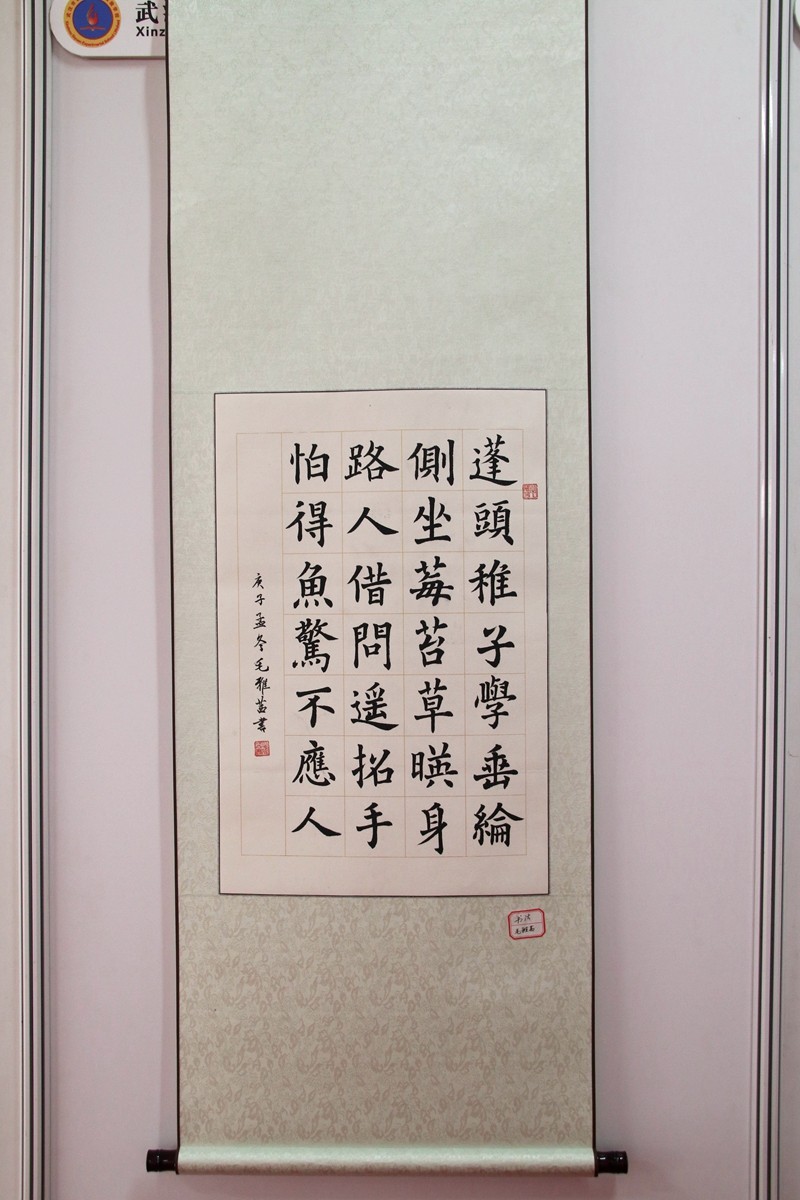 武
Xinz
蓬頭稚子學垂綸
側坐莓苔草暎身
路人借問遥招手
怕得魚驚不應人
庚子孟冬毛雅茜書
书法